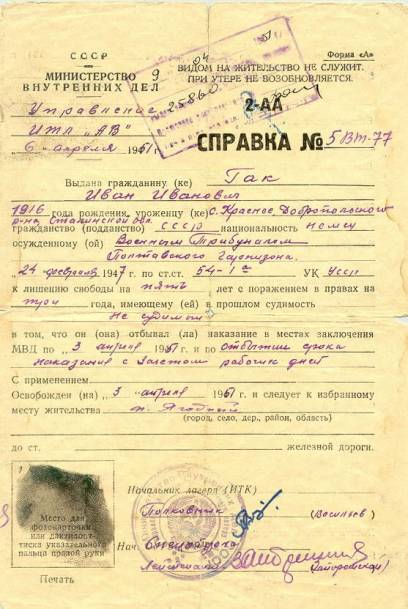 СССР
МИНИСТЕРСТВО
ВНУТРЕННИХ ДЕЛ
Форма «А»
ВИДОМ НА ЖИТЕЛЬСТВО НЕ СЛУЖИТ.
ПРИ УТЕРЕ НЕ ВОЗОБНОВЛЯЕТСЯ.
Управление
ИТЛ „АВ"
6 апреля 1951 г.
25860
2-АА
СПРАВКА № 5 Вт-77
Выдана гражданину (ке) Гак
Иван Иванович
1916 года рождения, уроженцу (ке) с. Красное, Добропольского
р-на Сталинской обл.
гражданство (подданство) СССР национальность немец
осужденному (ой) Военным Трибуналом
Полтавского Гарнизона.
„24 февраля 1947 по ст.ст. 54-1а УК УССР
к лишению свободы на пять лет с поражением в правах на
три года, имеющему (ей) в прошлом судимость
не судимый
в том, что он (она) отбывал (ла) наказание в местах заключения
МВД по „3 апреля 1951 г. и по отбытии срока
наказания с зачетом рабочих дней
С применением
Освобожден (на) „3 апреля 1951 г. и следует к избранному
месту жительства п. Ягодный
(город, село, дер., район, область)
до ст. железной дороги.
Место для
фотокарточки
или дактилоот-
тиска указательного
пальца правой руки
Печать
Начальник лагеря (ИТК)
Полковник (Васильев)
Нач. Спецотдела
Лейтенант